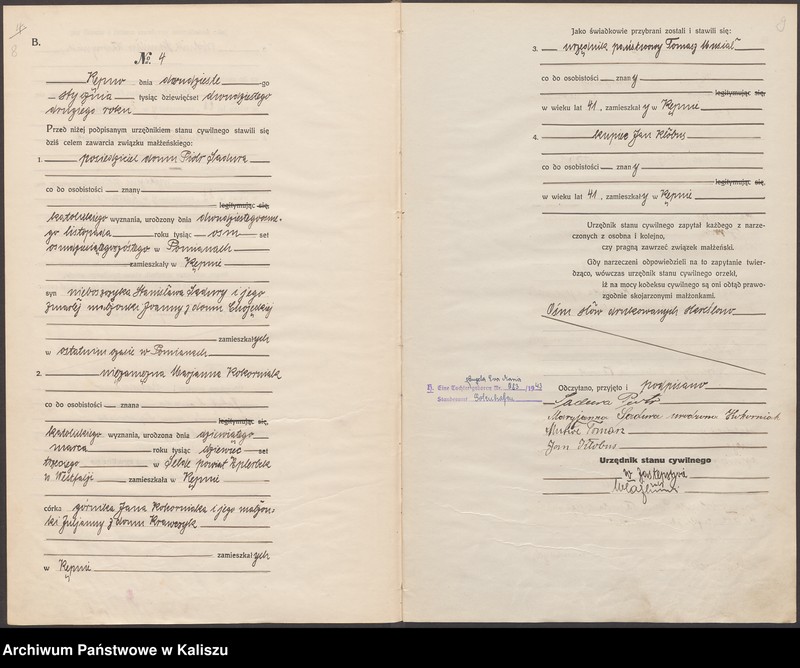 B.
№ 4
Kępno dnia dwudziestego
stycznia tysiąc dziewięćset dwudziestego
drugiego roku
Przed niżej podpisanym urzędnikiem stanu cywilnego stawili się
dziś celem zawarcia związku małżeńskiego:
1. posiedziciel domu Piotr Sadura
co do osobistości znany
legitymując się,
katolickiego wyznania, urodzony dnia
go listopada roku tysiąc osm set
w Pomianach
zamieszkały w Kępnie
syn nieboszczyka Stanisława Sadury i jego
zmarłej małżonki Joanny z domu
zamieszkałych
w ostatnim czasie w Pomianach
2. niezamężna Marjanna Kokorniak
co do osobistości znana
legitymując się,
katolickiego wyznania, urodzona dnia dziewiątego
marca roku tysiąc dziewięć set
trzeciego w powiat
w Westfalji zamieszkała w Kępnie
córka górnika Jana Kokorniaka i jego małżon-
ki Juljanny z domu Krawczyk
zamieszkałych
w Kępnie
Jako świadkowie przybrani zostali i stawili się:
3. urzędnik państwowy Tomasz
co do osobistości znany
legitymując się,
w wieku lat 41, zamieszkały w Kępnie
4. kupiec Jan Kłobus
co do osobistości znany
legitymując się,
w wieku lat 41, zamieszkały w Kępnie
Urzędnik stanu cywilnego zapytał każdego z narze-
czonych z osobna i kolejno,
czy pragną zawrzeć związek małżeński.
Gdy narzeczeni odpowiedzieli na to zapytanie twier-
dząco, wówczas urzędnik stanu cywilnego orzekł,
iż na mocy kodeksu cywilnego są oni obtąd prawo-
zgodnie skojarzonymi małżonkami.
Osm słów drukowanych skreślono
Eine Tochter geboren Nr.
Standesamt Gotenhafen
Odczytano, przyjęto i podpisano
Sadura Piotr
Maryjanna Sadura urodzona Kokorniak
Tomasz
Jan Kłobus
Urzędnik stanu cywilnego
w zastępstwie
Archiwum Państwowe w Kaliszu